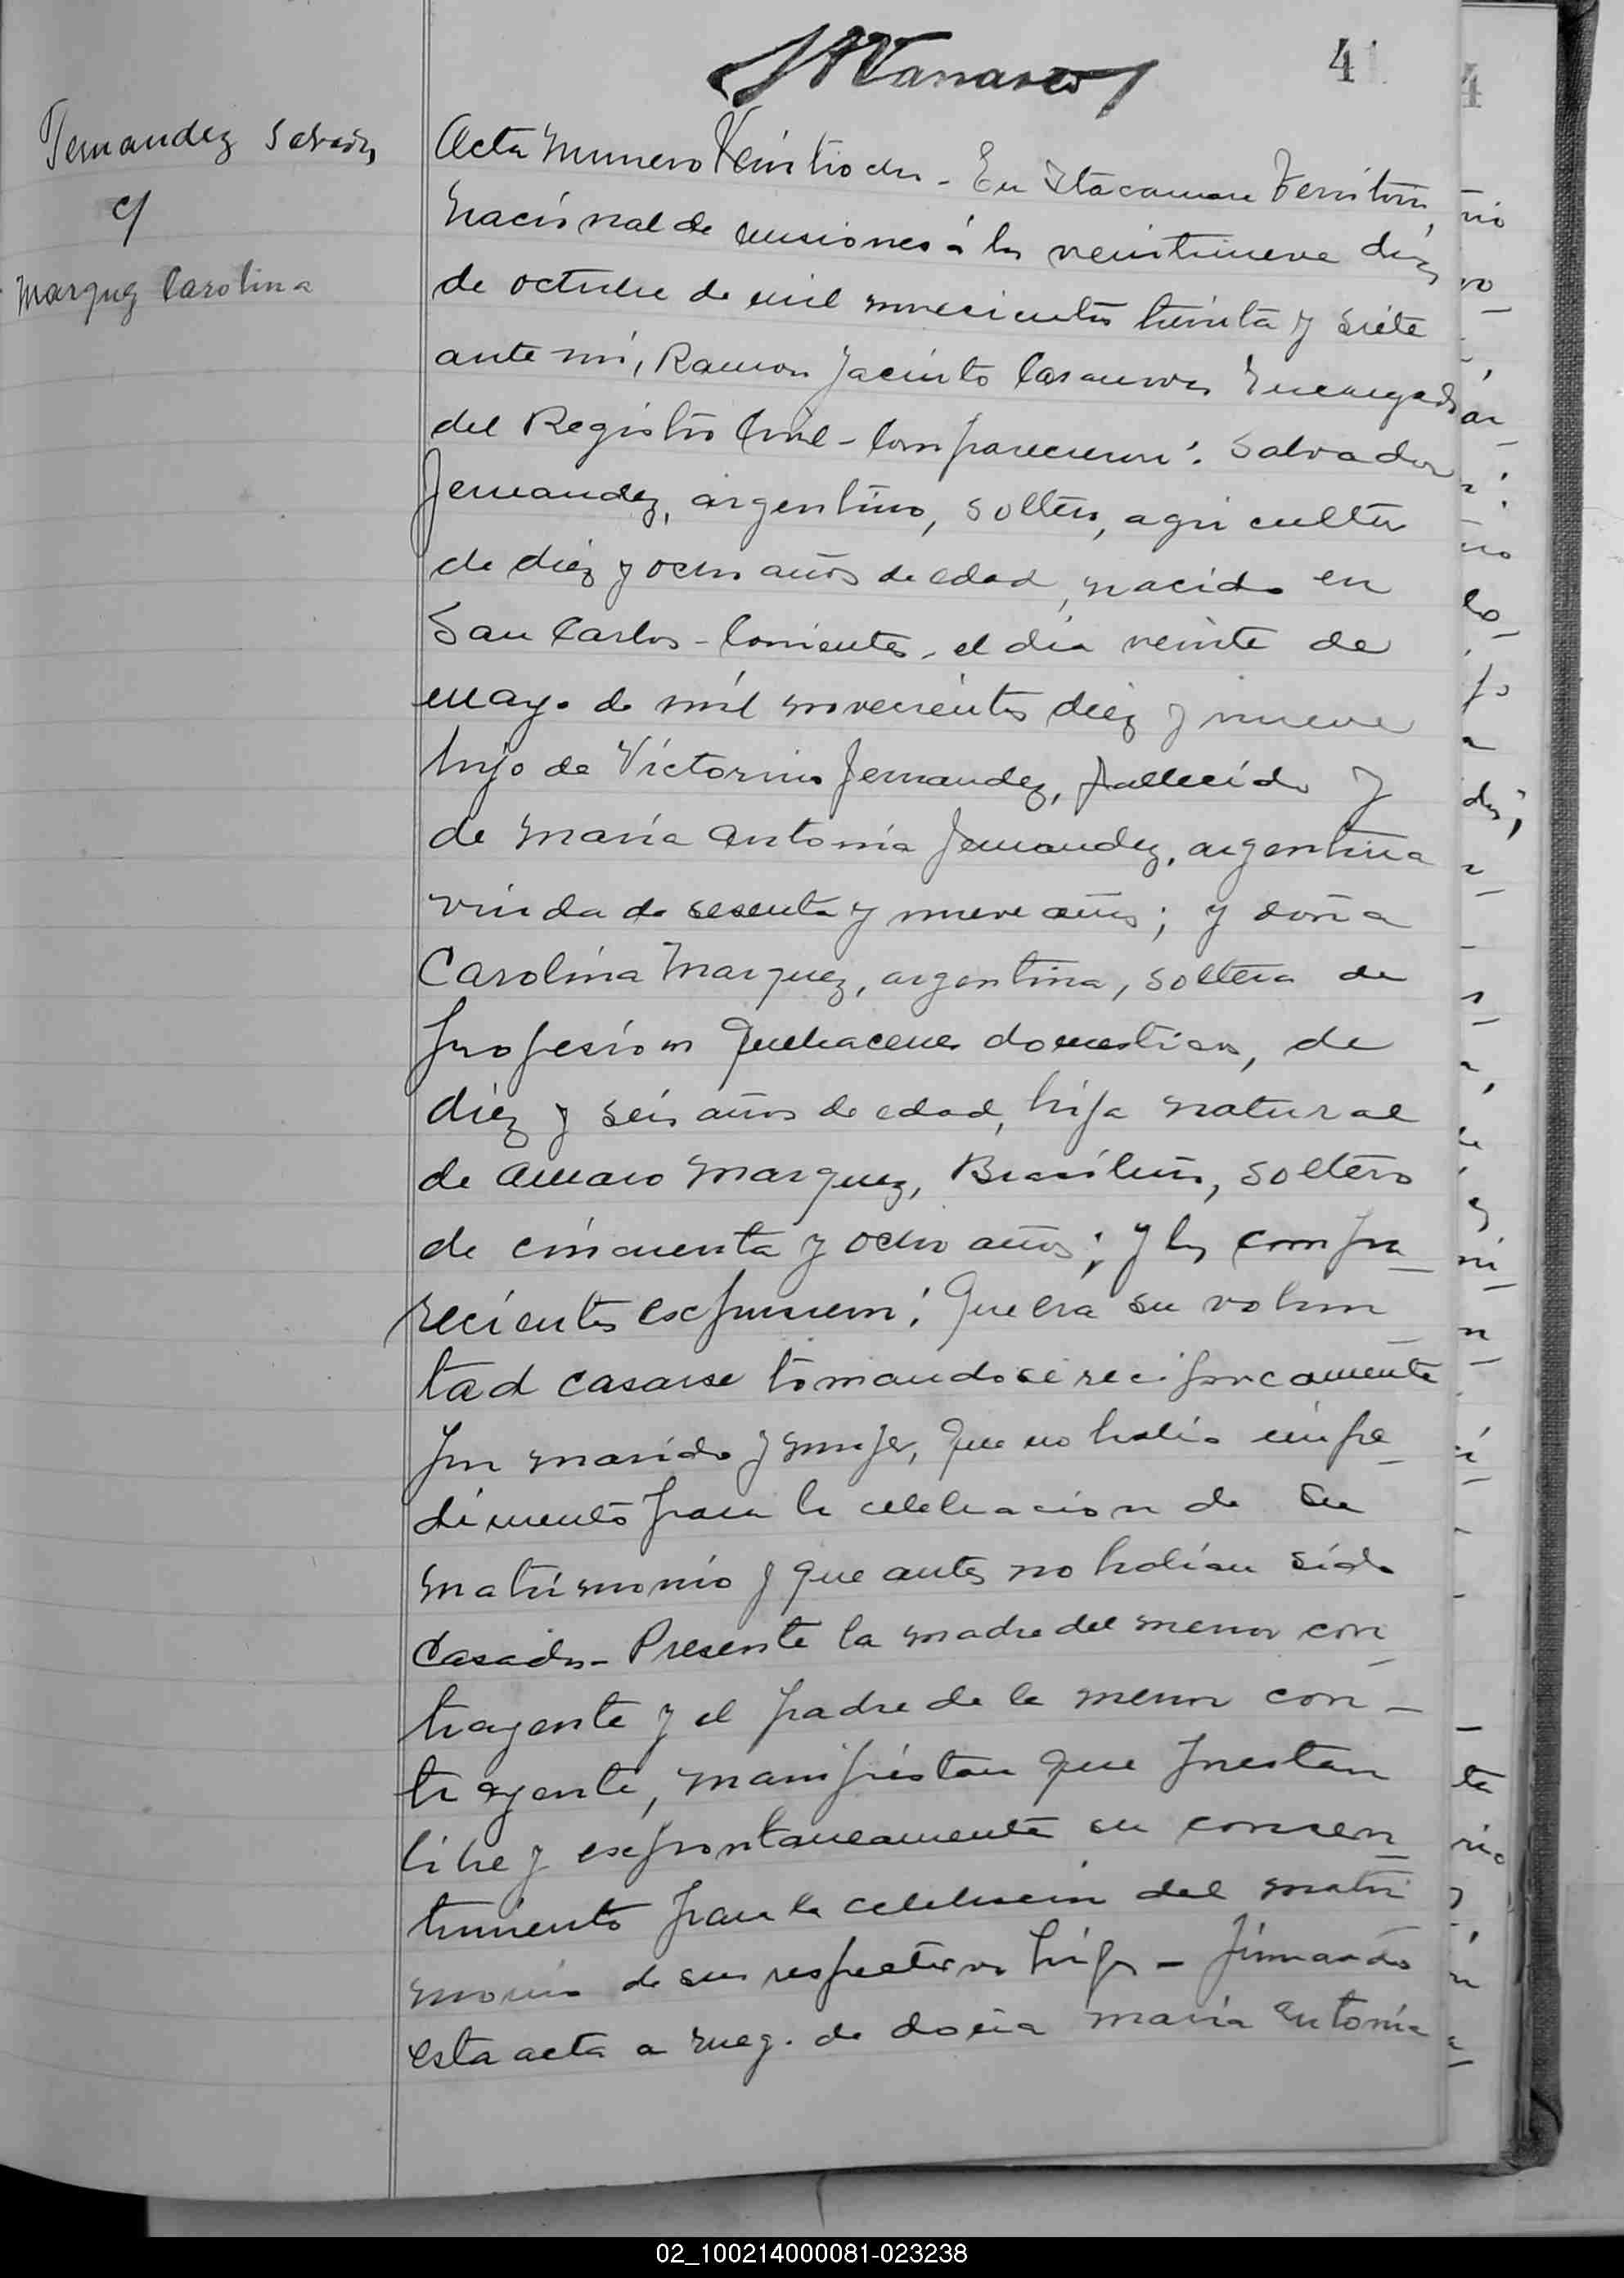 41
Fernandez Salvador
c/
Marquez Carolina
Acta Numero Veintidos - En Itacaruare Territorio
Nacional de Misiones á los veintinueve dias
de octubre de mil novecientos treinta y siete
ante mi, Ramon Jacinto Casanova Encargado
del Registro Civil - Comparecieron: Salvador
Fernandez, argentino, soltero, agricultor
de diez y ocho años de edad, nacido en
San Carlos - Corrientes, el dia veinte de
mayo de mil novecientos diez y nueve
hijo de Victorino Fernandez, fallecido y
de Maria Antonia Fernandez, argentina
viuda de sesenta y nueve años; y doña
Carolina Marquez, argentina, soltera de
profesion quehaceres domesticos, de
diez y seis años de edad, hija natural
de Amaro Marquez, Brasilero, soltero
de cincuenta y ocho años; y los compa_
recientes expusieron: Que era su volun_
tad casarse tomandose reciprocamente
por marido y mujer, que no habia impe_
dimento para la celebracion de su
matrimonio y que antes no habian sido
Casados - Presente la madre del menor con_
trayente y el padre de la menor con_
trayente, manifiestan que prestan
libre y expontaneamente su consen_
timiento para la celebracion del matri_
monio de sus respectivos hijos - Firmando
esta acta a ruego de doña Maria Antonia
02_100214000081-023238